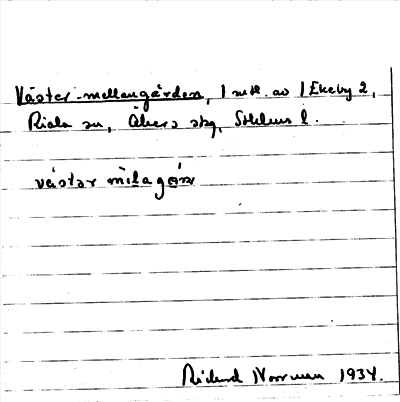 Väster-mellangården, 1 mtl. av 1 Ekeby 2,
Riala sn, Åkers skg, Sthlms l.
västər mìlagɑ́ṇ
Rickard Norrman 1934.